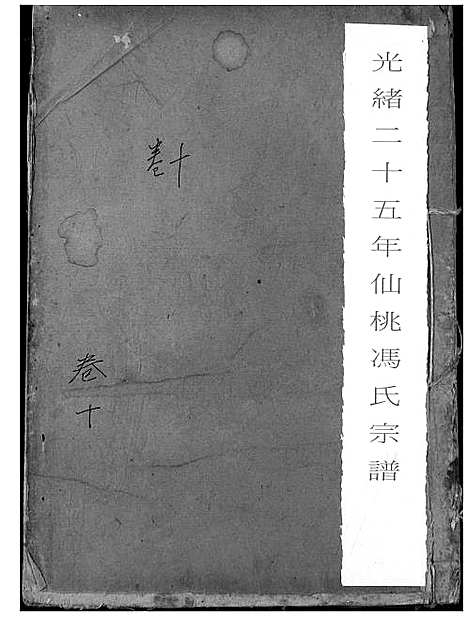 光緒二十五年仙桃馮氏宗譜
卷十
卷十